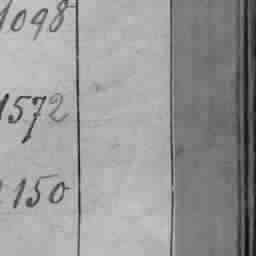 1098
1572
150